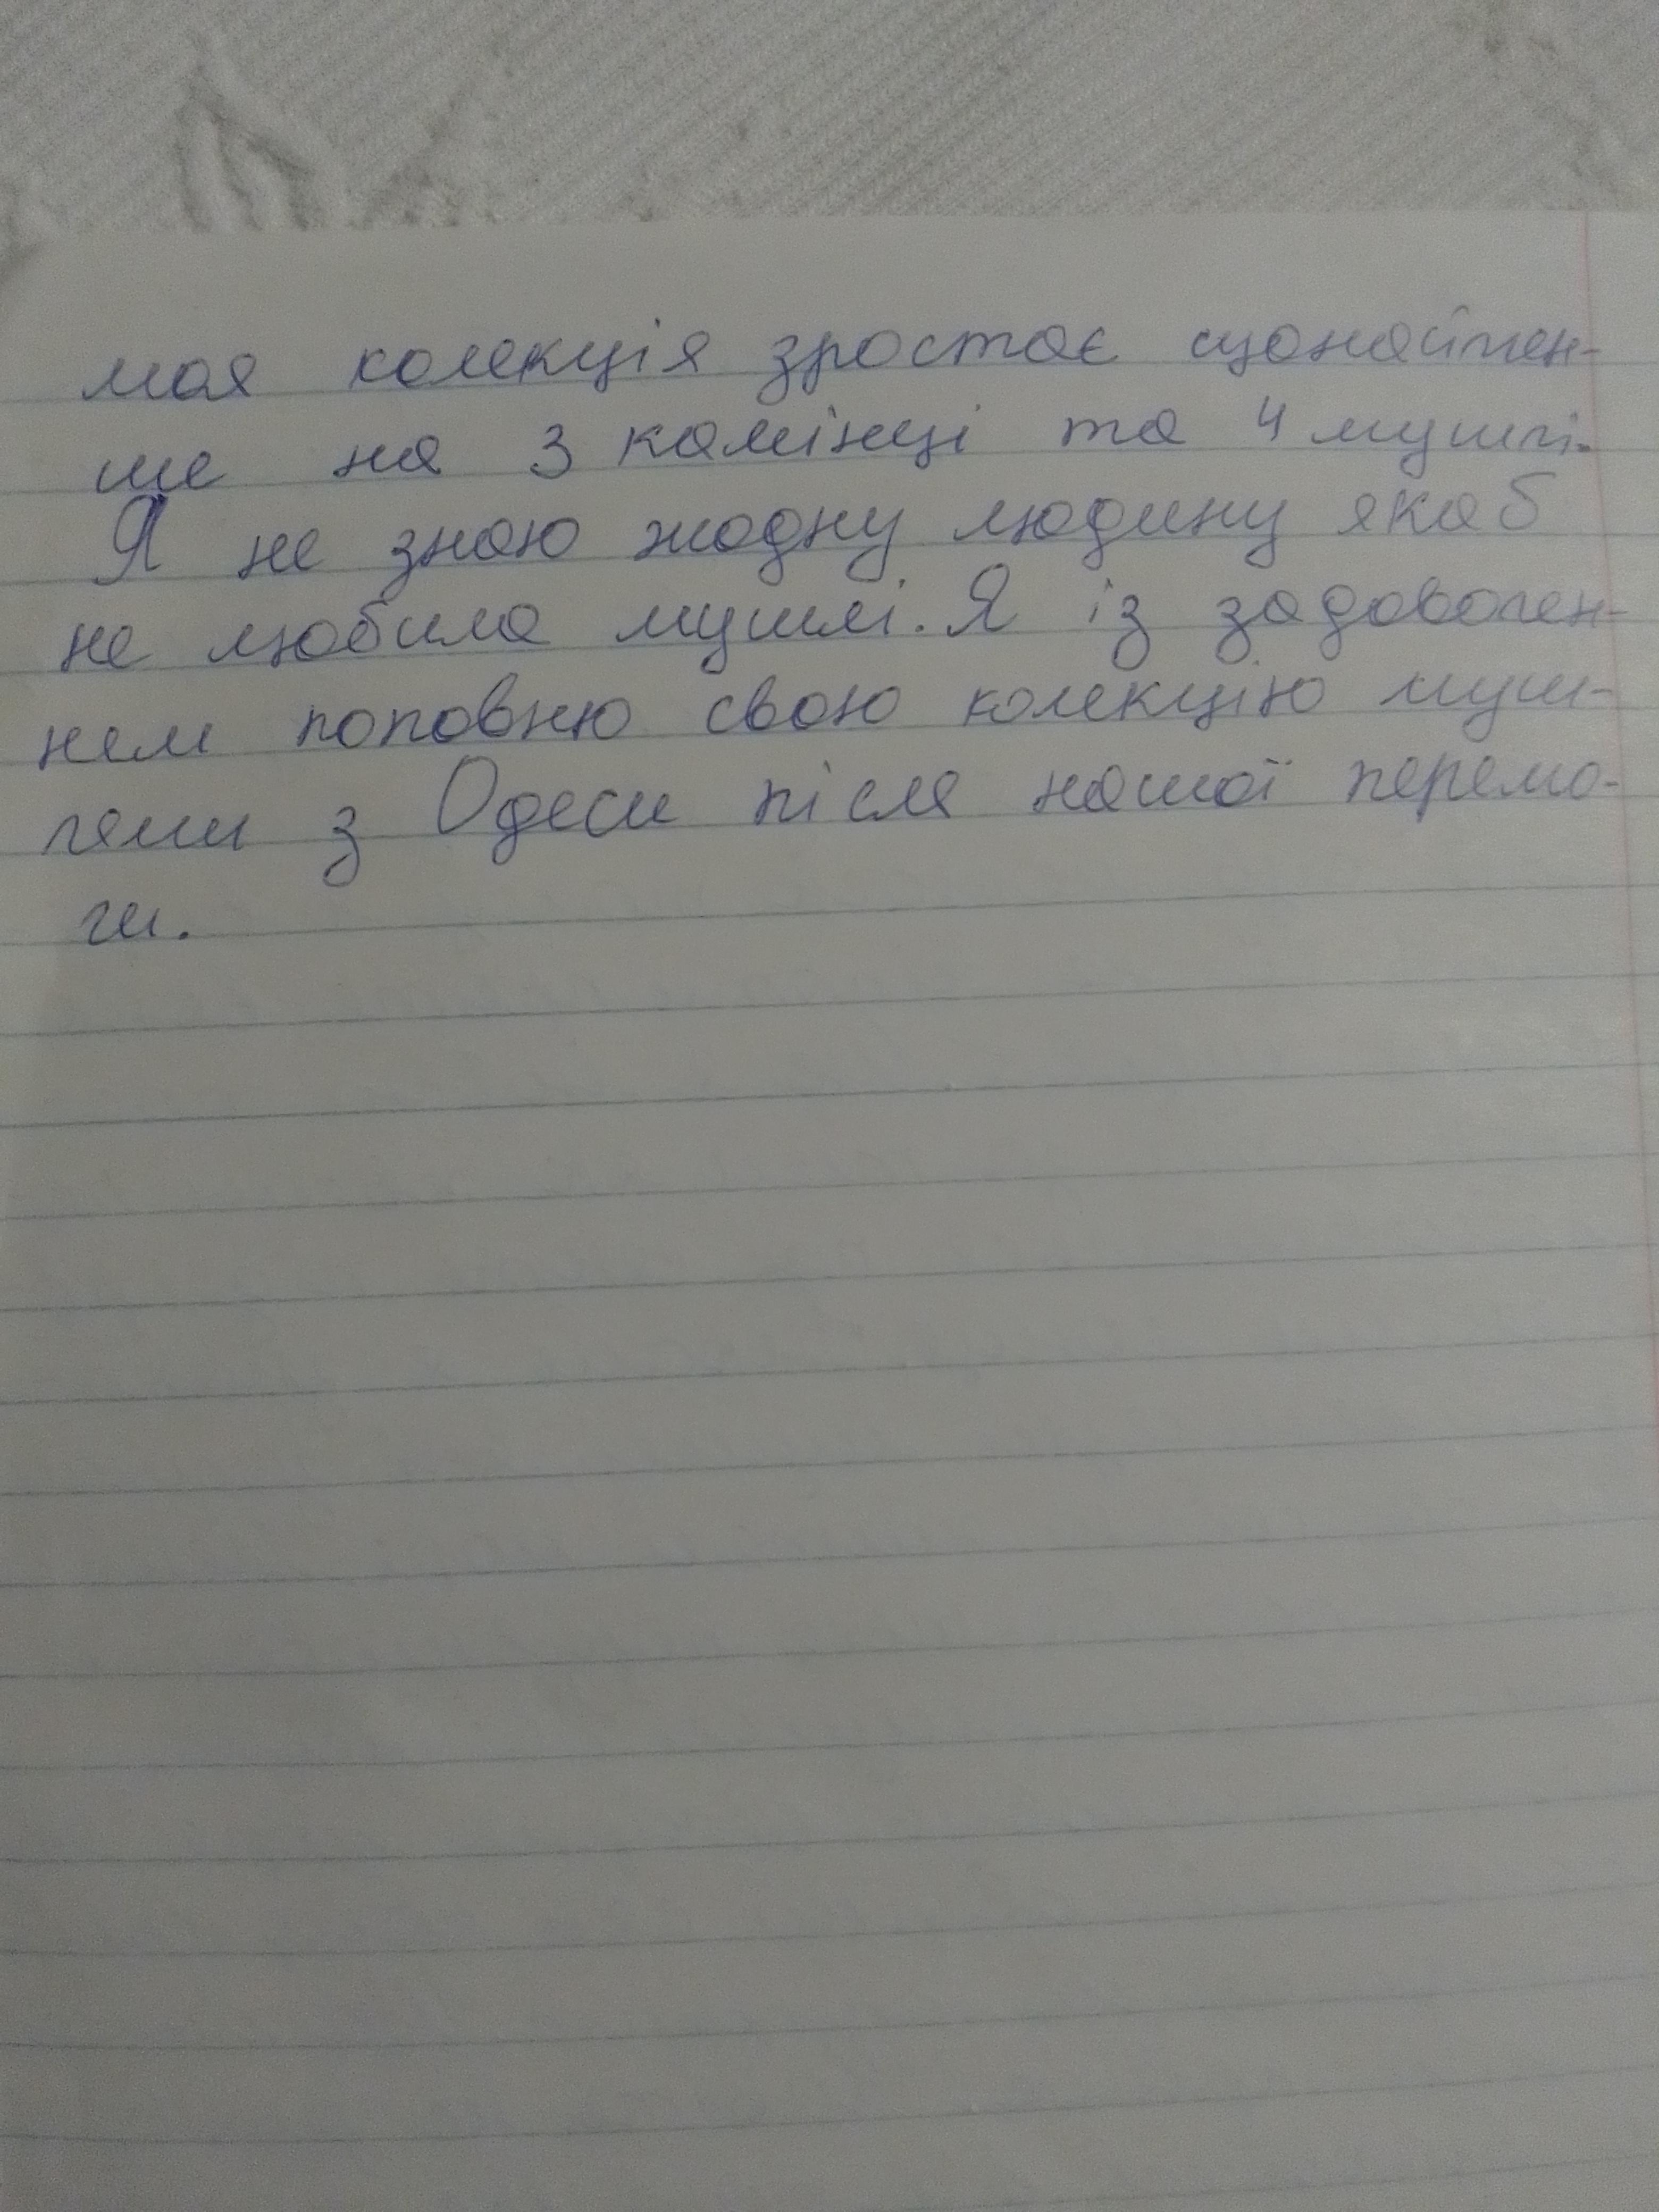 моя колекція зростає щонаймен-
ше на 3 камінці та 4 мушлі.
Я не знаю жодну людину яка б
не любила мушлі. Я із задоволен-
нем поповню свою колекцію муш-
лями з Одеси після нашої перемо-
ги.